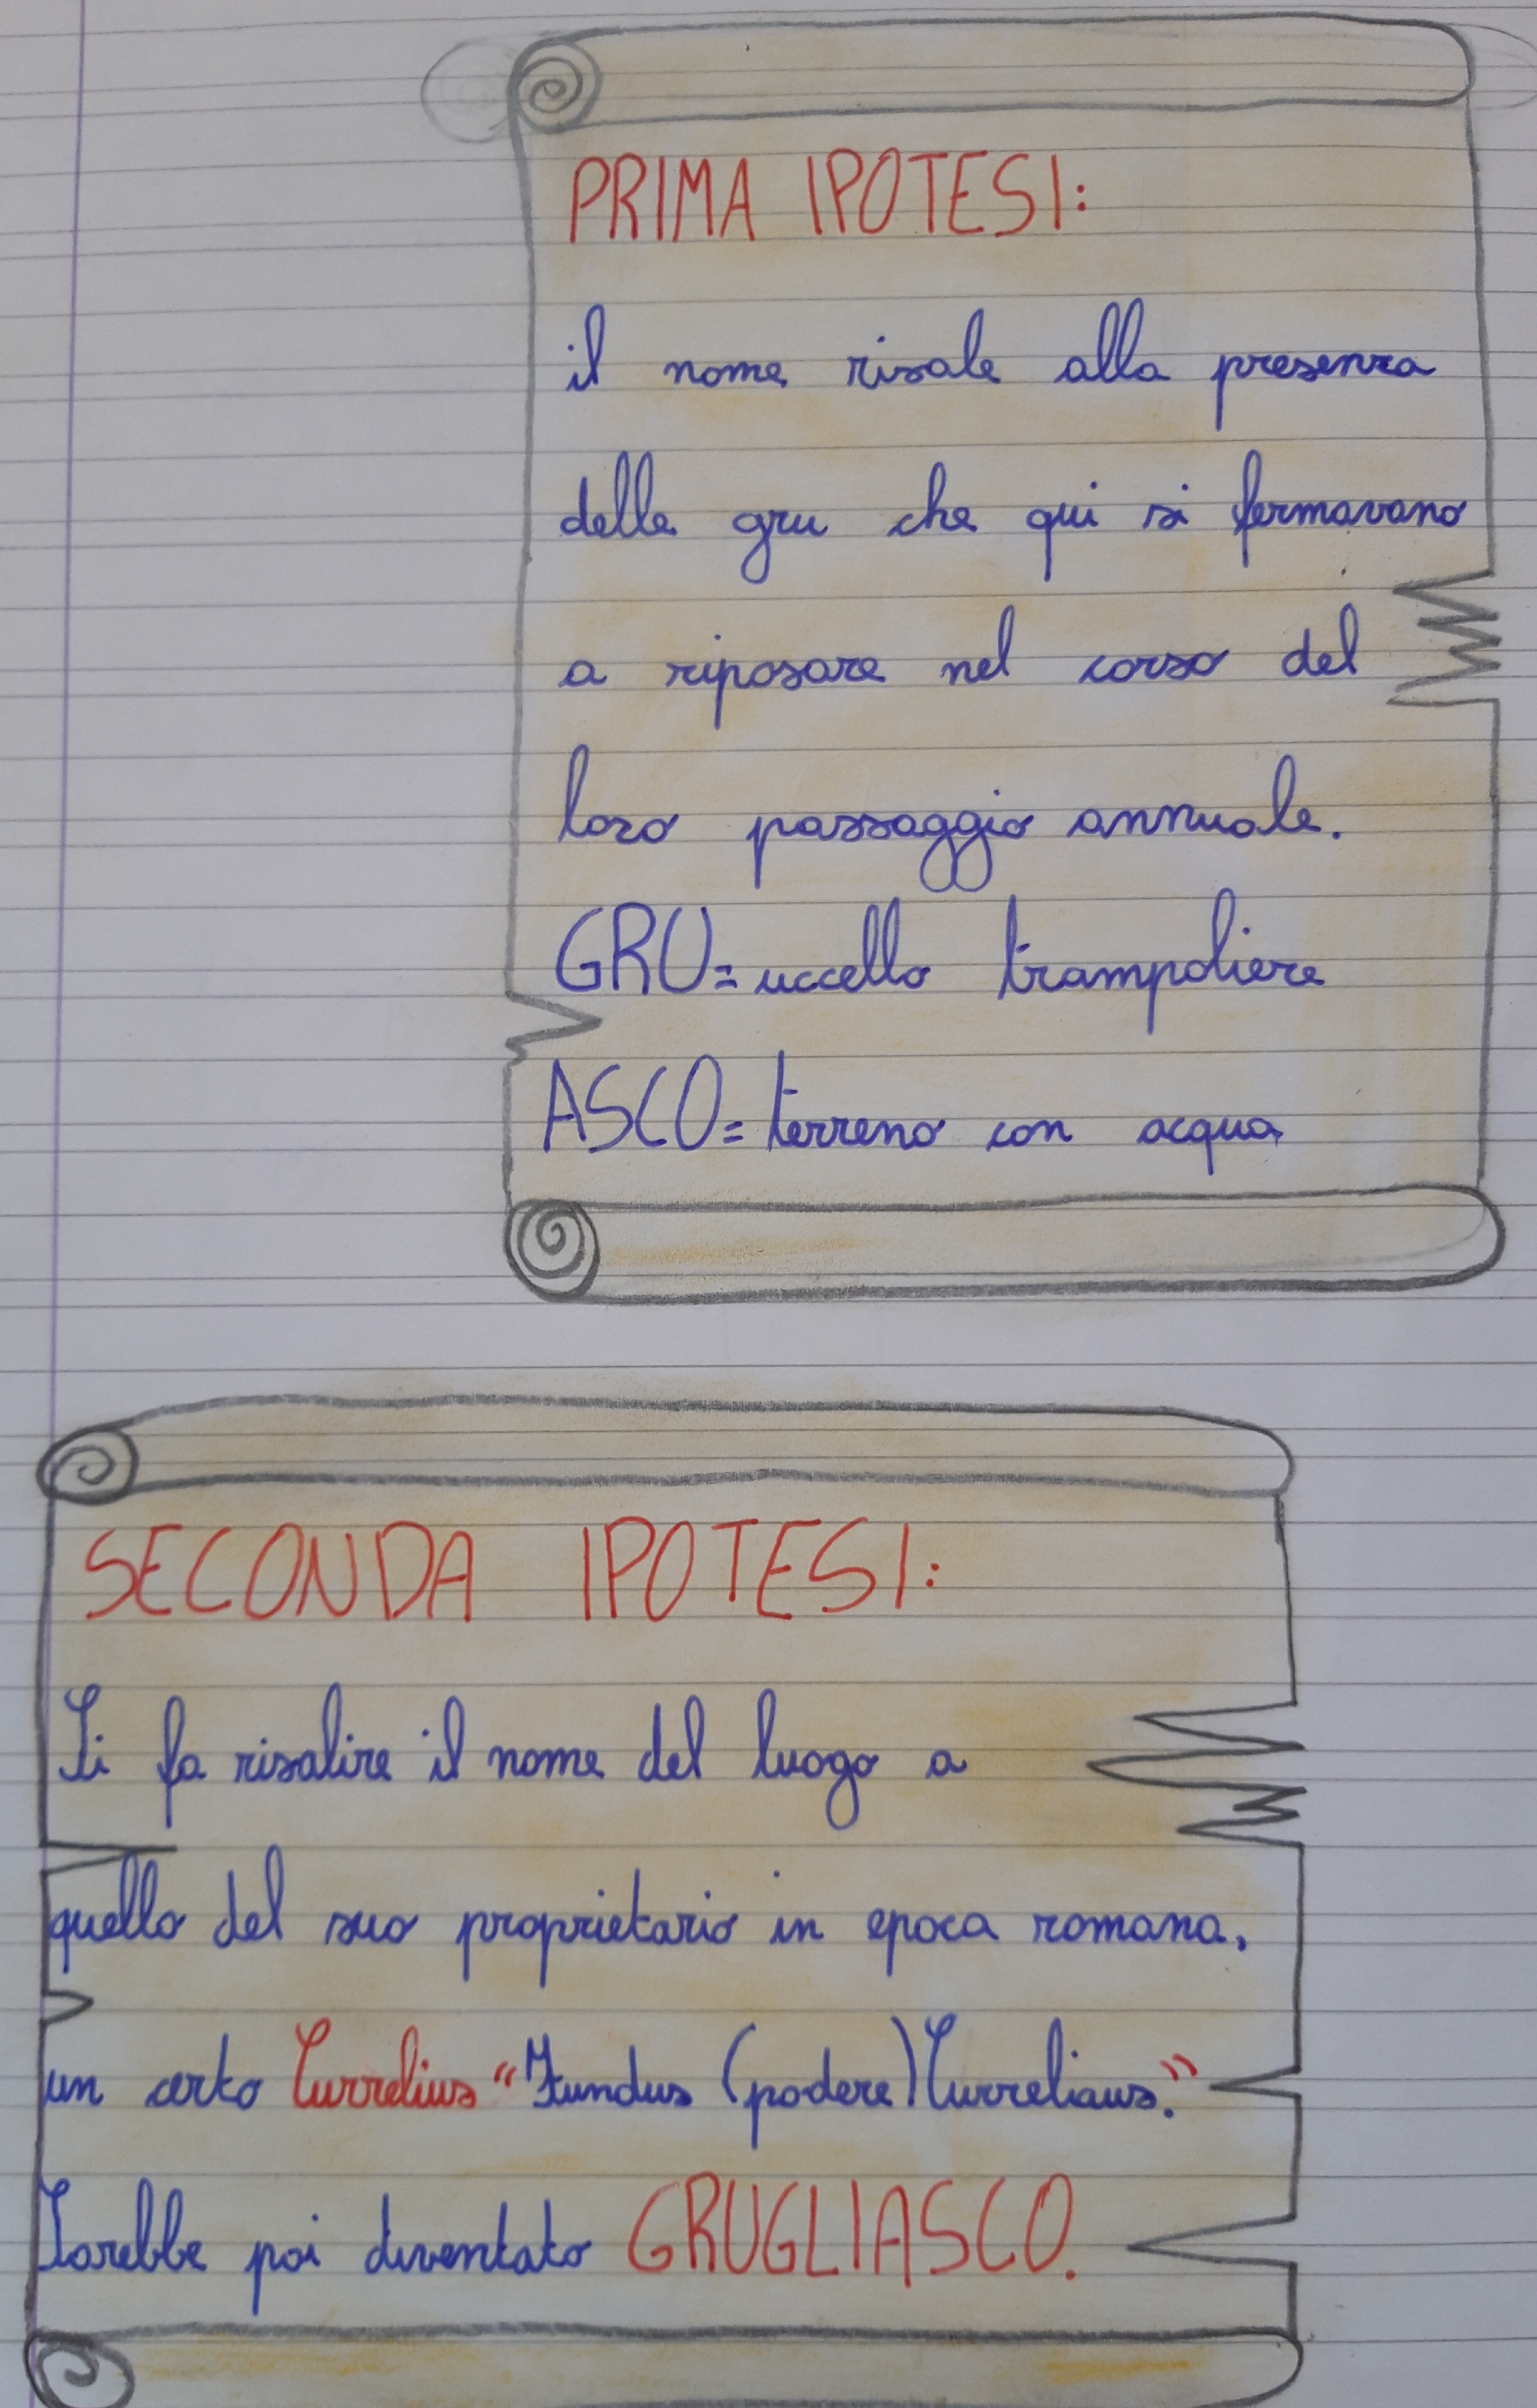 PRIMA IPOTESI:
il nome risale alla presenza
delle gru che qui si fermavano
a riposare nel corso del
loro passaggio annuale.
GRU= uccello trampoliere
ASCO= terreno con acqua
SECONDA IPOTESI:
Si fa risalire il nome del luogo a
quello del suo proprietario in epoca romana,
un certo Currelius "Fundus (podere) Curreliaus."
Sarebbe poi diventato GRUGLIASCO.